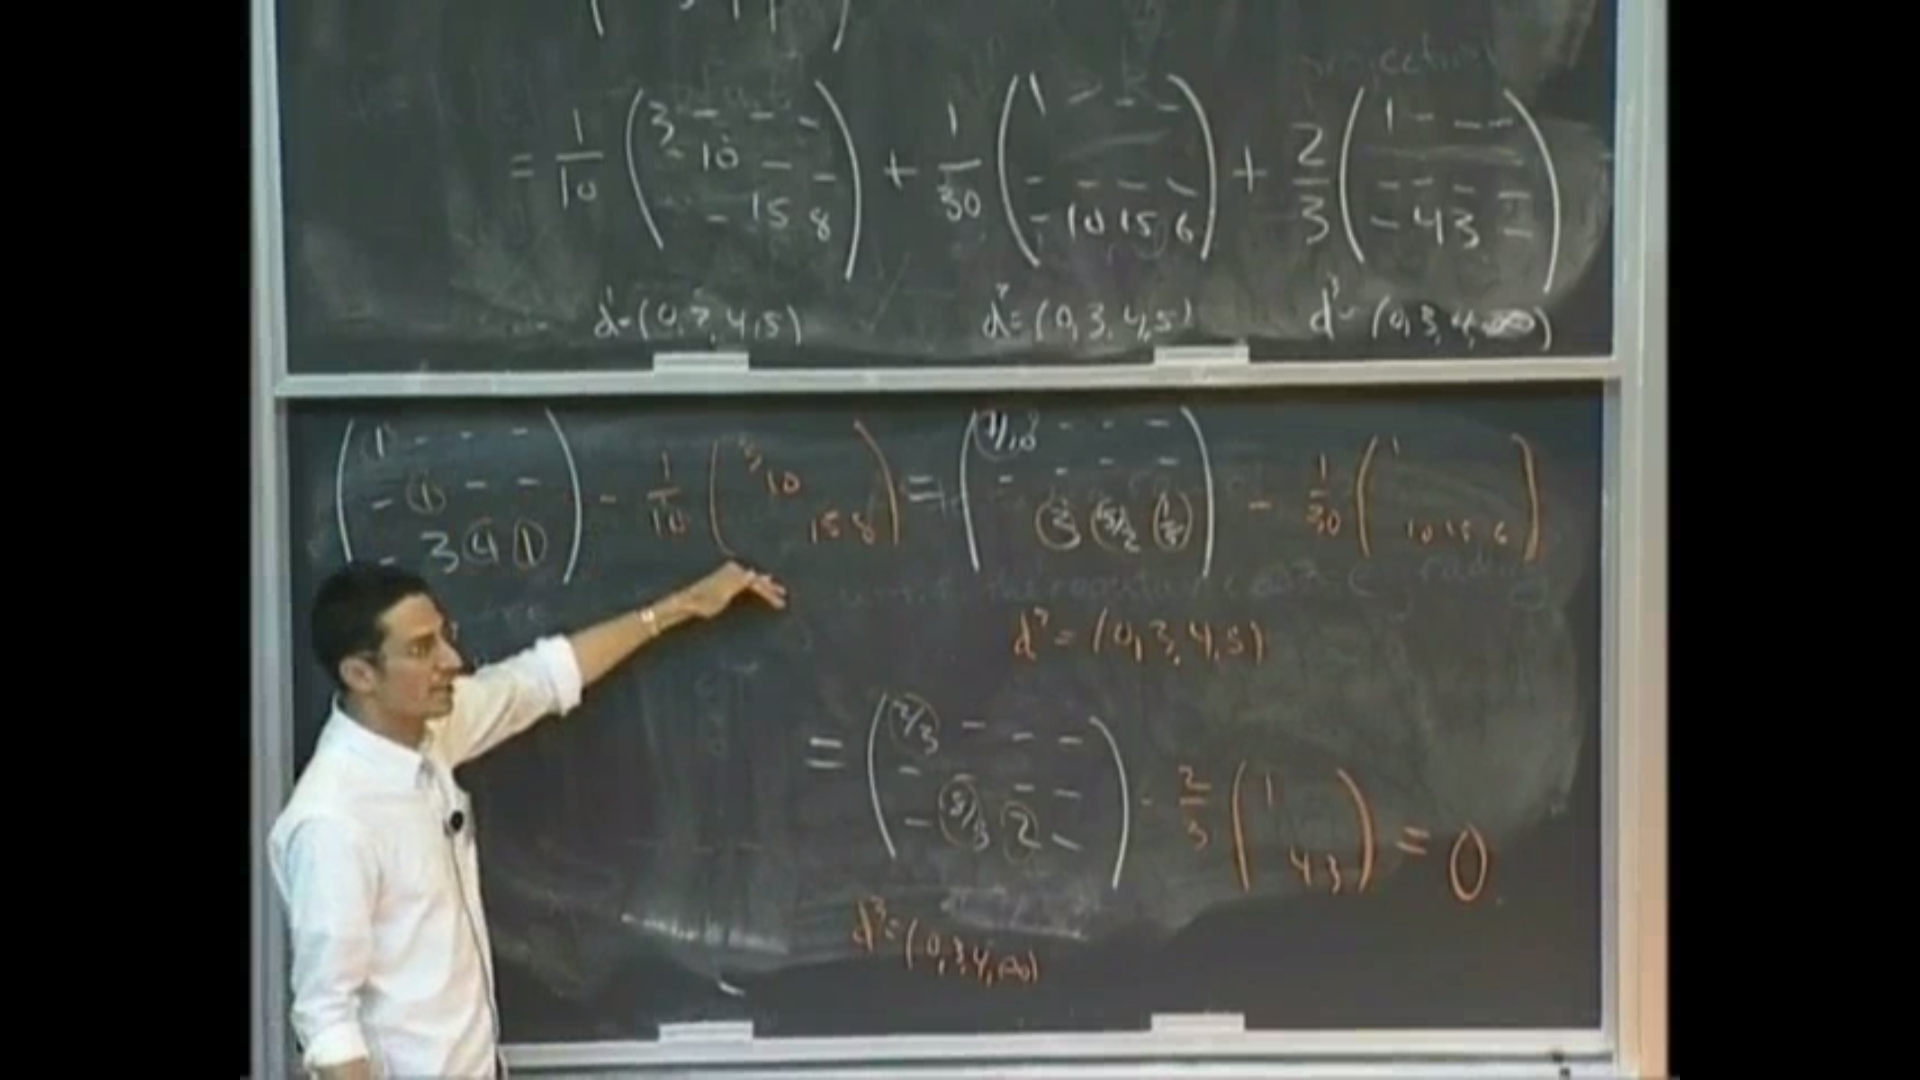 = 1/10 ( 3 - - - / - 10 - - / - 15 8 ) + 1/30 ( 1 - - - / - - - - / - 10 15 6 ) + 2/3 ( 1 - - - / - - - - / - 4 3 - )
d¹=(0,2,4,5) d²=(0,3,4,5) d³=(0,3,4,∞)
( 1 - - - / - 1 - - / - 3 4 1 ) - 1/10 ( 3 / 10 / 15 8 ) = ( 7/10 - - - / - - - - / 3 5/2 1/5 ) - 1/30 ( 1 / 10 15 6 )
d² = (0,3,4,5)
= ( 2/3 - - - / - - - / - 8/3 2 - ) - 2/3 ( 1 / 4 3 ) = 0
d³=(0,3,4,∞)